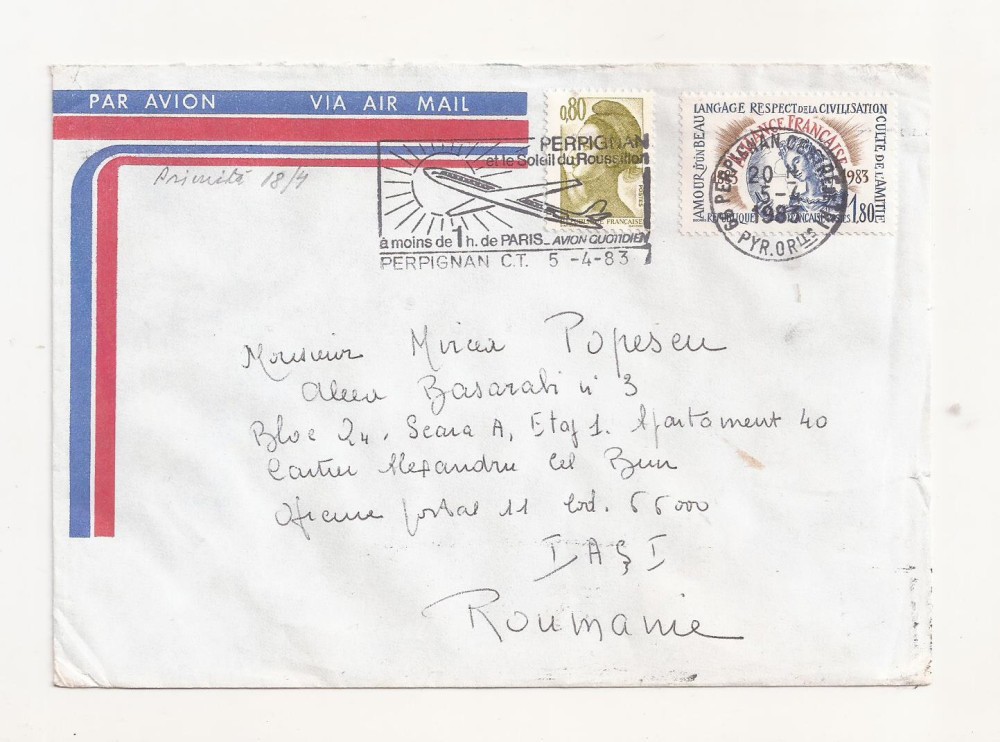 PAR AVION VIA AIR MAIL
0,80
POSTES
REPUBLIQUE FRANÇAISE
AMOUR D'UN BEAU LANGAGE RESPECT DE LA CIVILISATION CULTE DE L'AMITIÉ
ALLIANCE FRANÇAISE
1983
1,80
PERPIGNAN
et le Soleil du Roussillon
à moins de 1 h. de PARIS_ AVION QUOTIDIEN
PERPIGNAN C.T. 5 -4-83
66 PERPIGNAN
20 H
1983
PYR. ORLES
18/4
Monsieur Mircea Popescu
Aleea Basarabi n° 3
Bloc 24. Scara A, Etaj 1. Apartament 40
Cartier Alexandru Cel Bun
postal 11 Cod. 66000
IAŞI
Roumanie